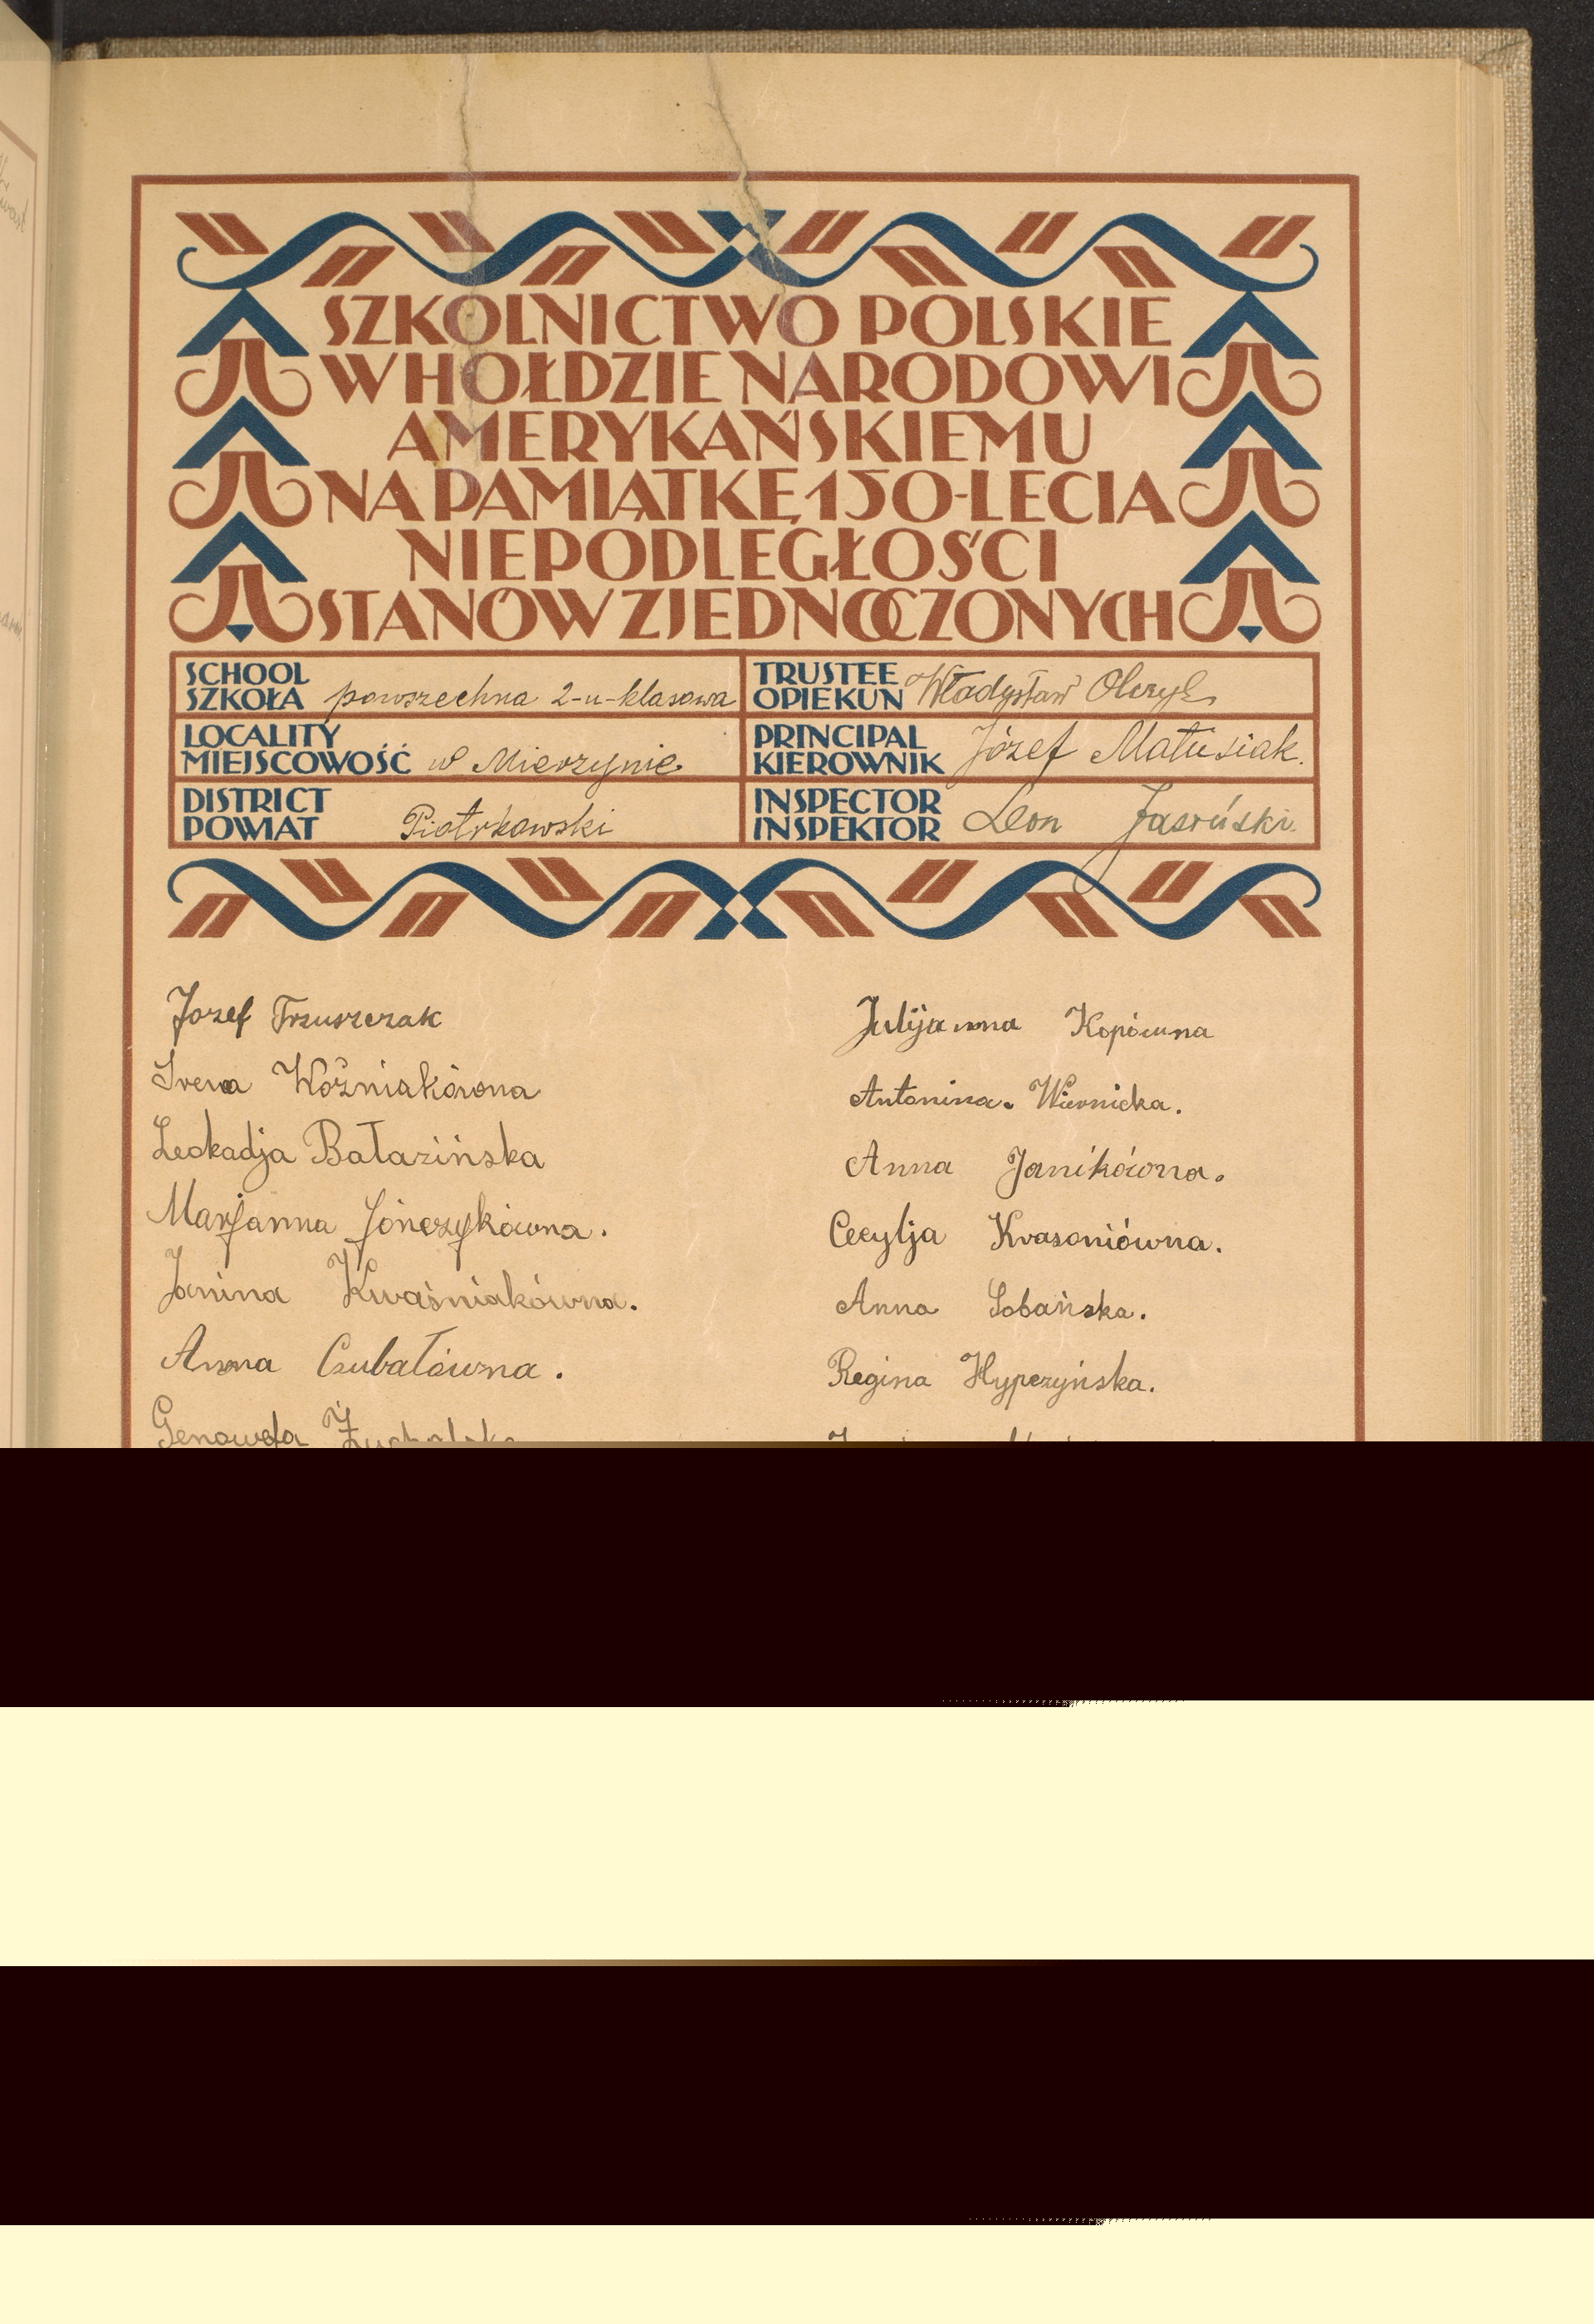 SZKOLNICTWO POLSKIE
W HOŁDZIE NARODOWI
AMERYKAŃSKIEMU
NA PAMIĄTKĘ 150-LECIA
NIEPODLEGŁOŚCI
STANÓW ZJEDNOCZONYCH
SCHOOL
SZKOŁA powszechna 2-u-klasowa
LOCALITY
MIEJSCOWOŚĆ w Mierzynie
DISTRICT
POWIAT Piotrkowski
TRUSTEE
OPIEKUN Władysław
PRINCIPAL
KIEROWNIK Józef Matusiak.
INSPECTOR
INSPEKTOR Leon Jasiński.
Jozef Trzuszczak
Irena Woźniakówna
Leokadja Bałazińska
Marjanna Jończykówna.
Janina Kwaśniakówna.
Anna Czubałówna.
Genowefa
Julijanna Kopówna
Antonina. Wiernicka.
Anna Janikówna.
Cecylja Krasoniówna.
Anna Sobańska.
Regina Hypczyńska.